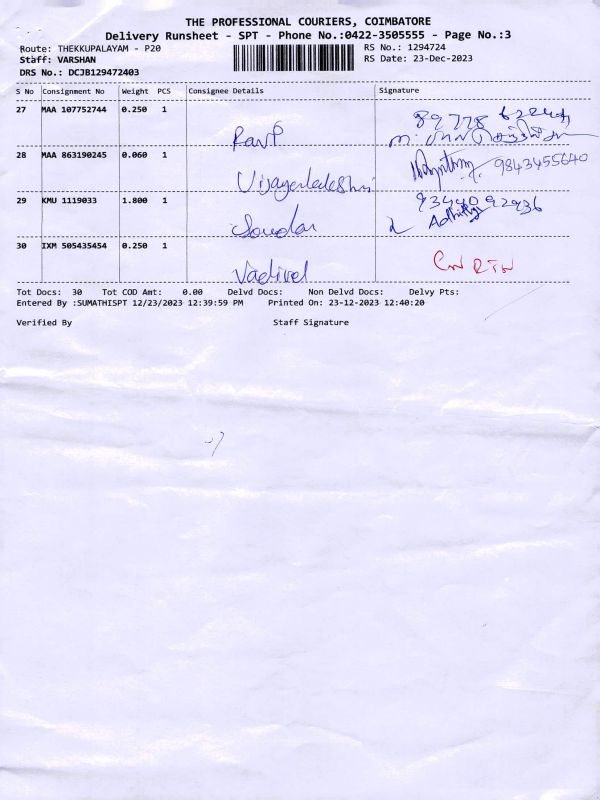 THE PROFESSIONAL COURIERS, COIMBATORE
Delivery Runsheet - SPT - Phone No.:0422-3505555 - Page No.:3
Route: THEKKUPALAYAM - P20 RS No.: 1294724
Staff: VARSHAN RS Date: 23-Dec-2023
DRS No.: DCJB129472403
S No Consignment No Weight PCS Consignee Details Signature
27 MAA 107752744 0.250 1
Ravi 89778
28 MAA 863190245 0.060 1
9843455640
29 KMU 1119033 1.800 1
30 IXM 505435454 0.250 1
Vadivel RTN
Tot Docs: 30 Tot COD Amt: 0.00 Delvd Docs: Non Delvd Docs: Delvy Pts:
Entered By :SUMATHISPT 12/23/2023 12:39:59 PM Printed On: 23-12-2023 12:40:20
Verified By Staff Signature